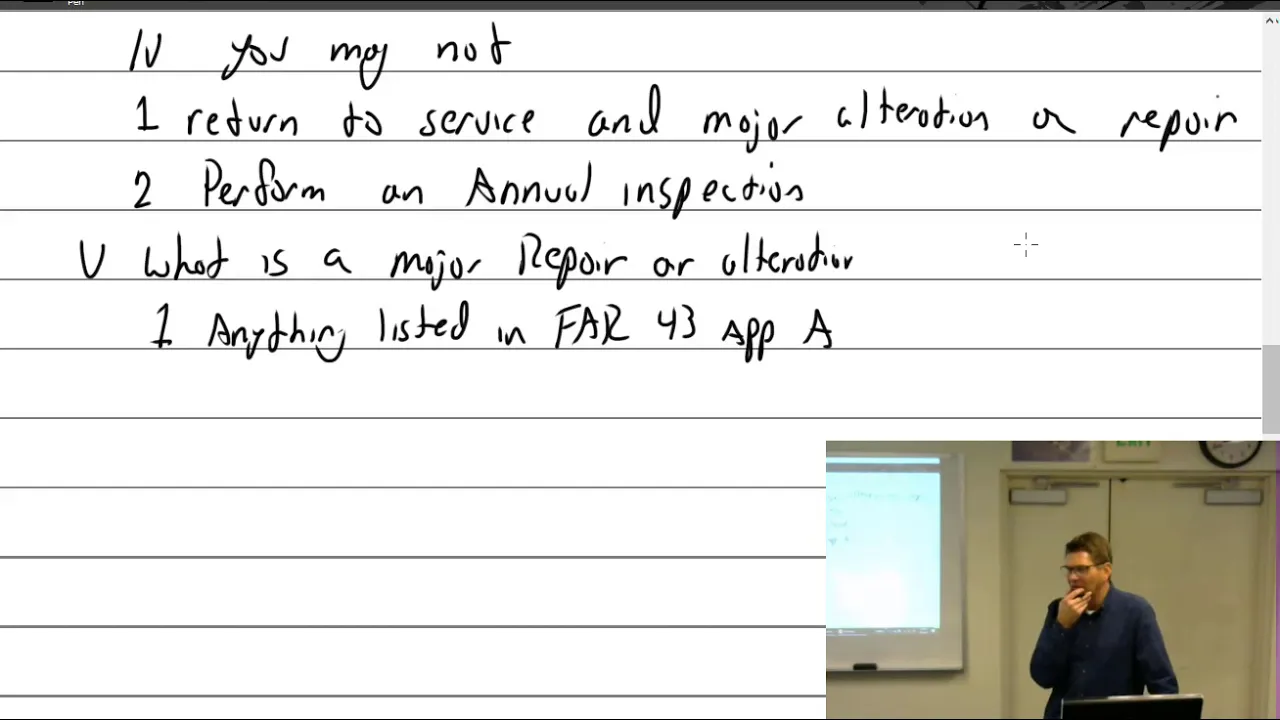 Pen
IV you may not
1 return to service and major alteration or repair
2 Perform an Annual inspection
V What is a major Repair or alteration
1 Anything listed in FAR 43 App A
EXIT